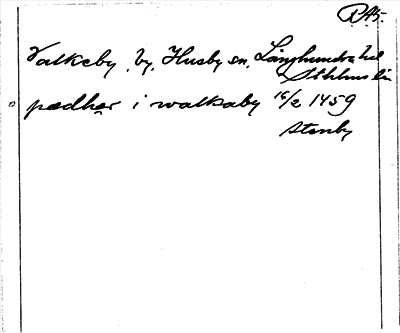 RA5.
Valkeby, by, Husby sn, Långhundra hd
Sthlms län
pædher i walkaby 16/2 1459
Stenby